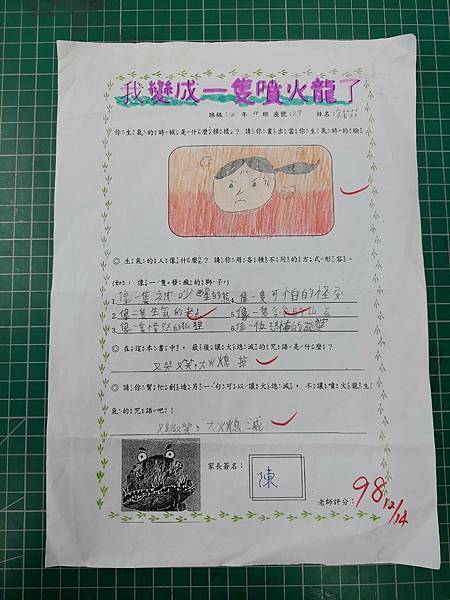 我變成一隻噴火龍了
班級:二年4班 座號:27 姓名:
你生氣的時候是什麼模樣?請你畫出當你生氣時的臉
◎生氣的人像什麼?請你用各種不同的方式形容。
(如:像一隻發瘋的獅子。)
1.像一隻被吵醒的 4.像一隻可怕的怪
2.像一隻生氣的老 5.像一隻
3.像一隻憤怒的狐狸 6.像一位恐怖的
◎在這本書中,最後讓火熄滅的咒語是什麼?
又哭又笑,大火熄
◎請你幫忙創造另一句可以讓火熄滅,不讓噴火龍生
氣的咒語吧!
大火熄滅
家長簽名:
陳
老師評分:
98
12/14